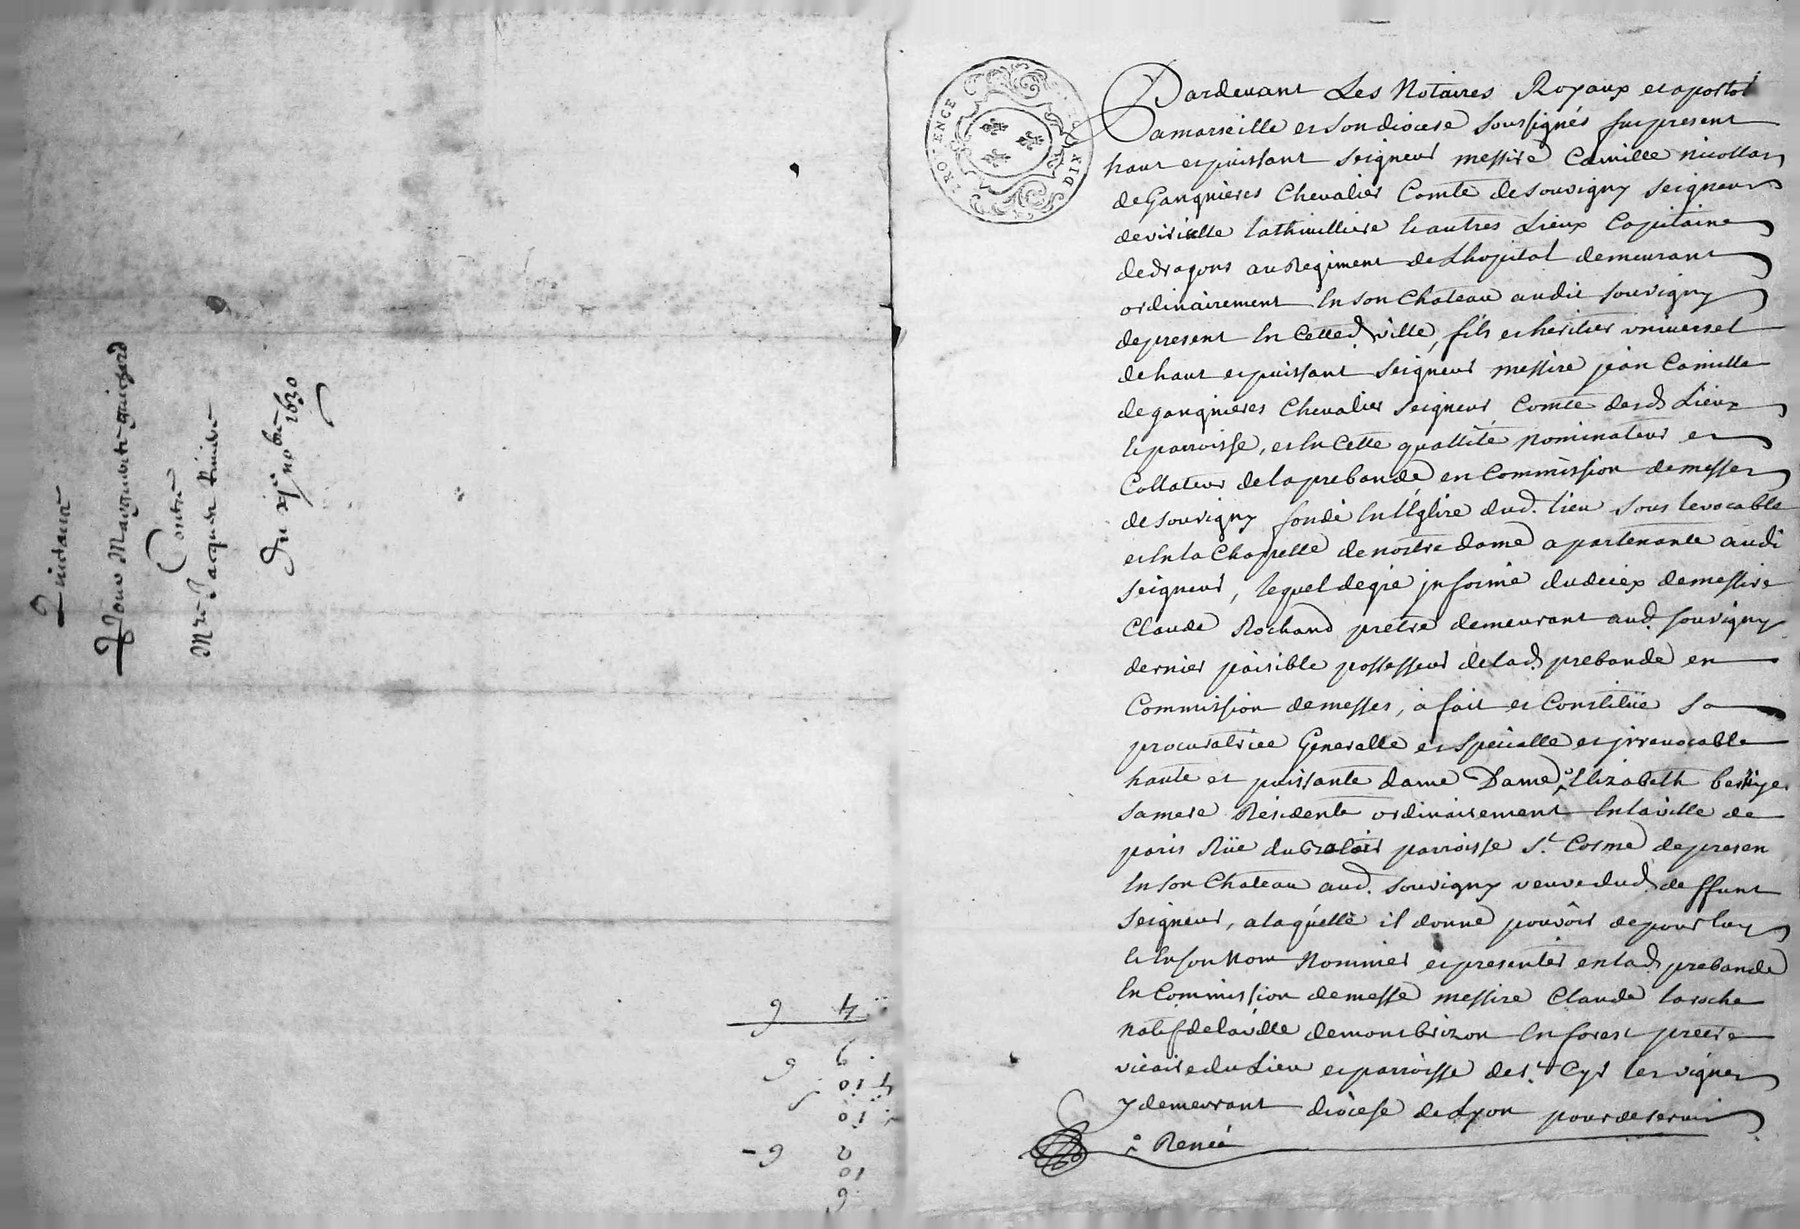 Quictance
pour Marguerite guichard
Contre
Mre Jacques
Du xije nobre 1630
4 6
9 6
10
10
2 6
10
6
PROVENCE
DIX
Pardevant Les Notaires Royaux et apostol
a marseille et son diocese soussignés fut present
haut et puissant seigneur messire Camille nicollas
de Gangnieres Chevalier Comte de souvigny seigneur
de viricelle lathuilliere & autres Lieux Capitaine
de dragons au Regiment de Lhopital demeurant
ordinairement En son Chateau audit souvigny
de present En Cette d. ville, fils et heritier universel
de haut et puissant seigneur messire jean Camille
de gangnieres Chevalier seigneur Comte desd. Lieux
& parroisse, et En Cette quallité nominateur et
Collateur de la prebande en Commission de messes
de souvigny fondé En l'Eglise dud. lieu sous le vocable
et En la Chappelle de nostre dame apartenante audi
seigneur, lequel de gré jnformé du decex de messire
Claude Rochand pretre demeurant aud. souvigny
dernier paisible possesseur de lad. prebande en
Commission de messes, à fait et Constitüé sa
procuratrice Generalle et specialle et jrrevocable
haute et puissante dame Dame Elizabeth
sa mere Residente ordinairement En la ville de
paris Rüe du parroisse St. Cosme de presen
En son Chateau aud. souvigny veuve dud. deffunt
seigneur, a laquelle il donne pouvoir de pour luy
& En son Nom Nommer et presenter en lad. prebande
En Commission de messe messire Claude laroche
natif de la ville de montbrizon En forest pretre
vicaire du Lieu et parroisse de St. Cyr les vignes
y demeurant diocese de Lyon pour deservir
Renée